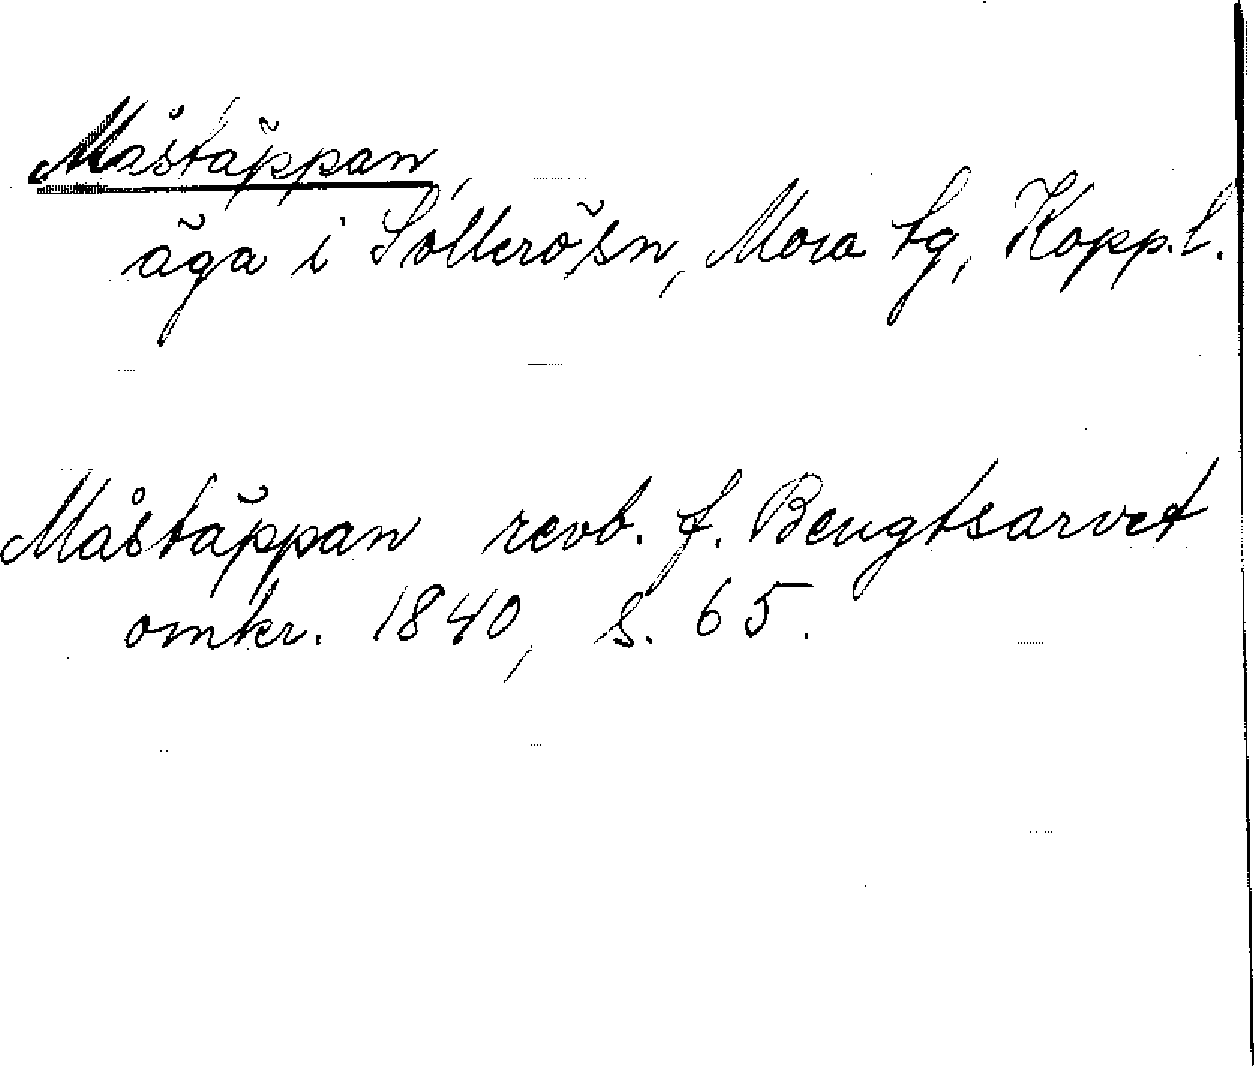 Måstäppan,
äga i Sollerö sn, Mora tg, Kopp.l.
Måstäppan revb. f. Bengtsarvet
omkr. 1840, s. 65.